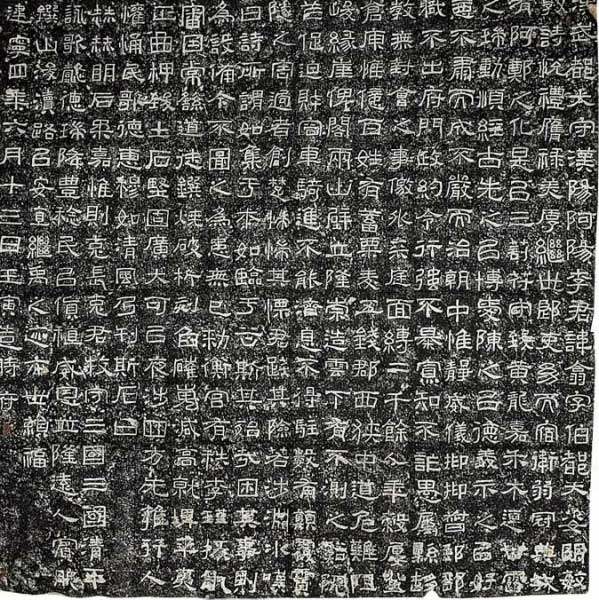 武都太守漢陽阿陽李君諱翕字伯都天姿明敏
敦詩悅禮膺祿美厚繼世郎吏幼而宿衛弱冠典城
有阿鄭之化是以三剖符守致黃龍嘉禾木連甘露
之瑞動順經古先之以博愛陳之以德義示之以好
惡不肅而成不嚴而治朝中惟靜威儀抑抑督郵部
職不出府門政約令行強不暴寡知不詐愚屬縣趨
教無對會之事徼外來庭面縛二千餘人年穀屢登
倉庾惟億百姓有蓄粟麥五錢郡西狹中道危難阻
峻緣崖俾閣兩山壁立隆崇造雲下有不測之谿阨
笮促迫財容車騎進不能濟息不得駐數有顛覆霣
隧之害過者創楚惴惴其慄君踐其險若涉淵冰嘆
曰詩所謂如集于木如臨于谷斯其殆哉困其事則
為設備今不圖之為患無已敕衡官有秩李瑾掾仇
審因常繇道徒鐉燒破析刻臽確嵬減高就埤平夷
正曲柙致土石堅固廣大可以夜涉四方无雍行人
懽悀民歌德惠穆如清風乃刊斯石曰
赫赫明后柔嘉惟則克長克君牧守三國三國清平
詠歌懿德瑞降豐稔民以貨稙威恩並隆遠人賓服
鐉山浚瀆路以安直繼禹之迹亦世賴福
建寧四年六月十三日壬寅造時府